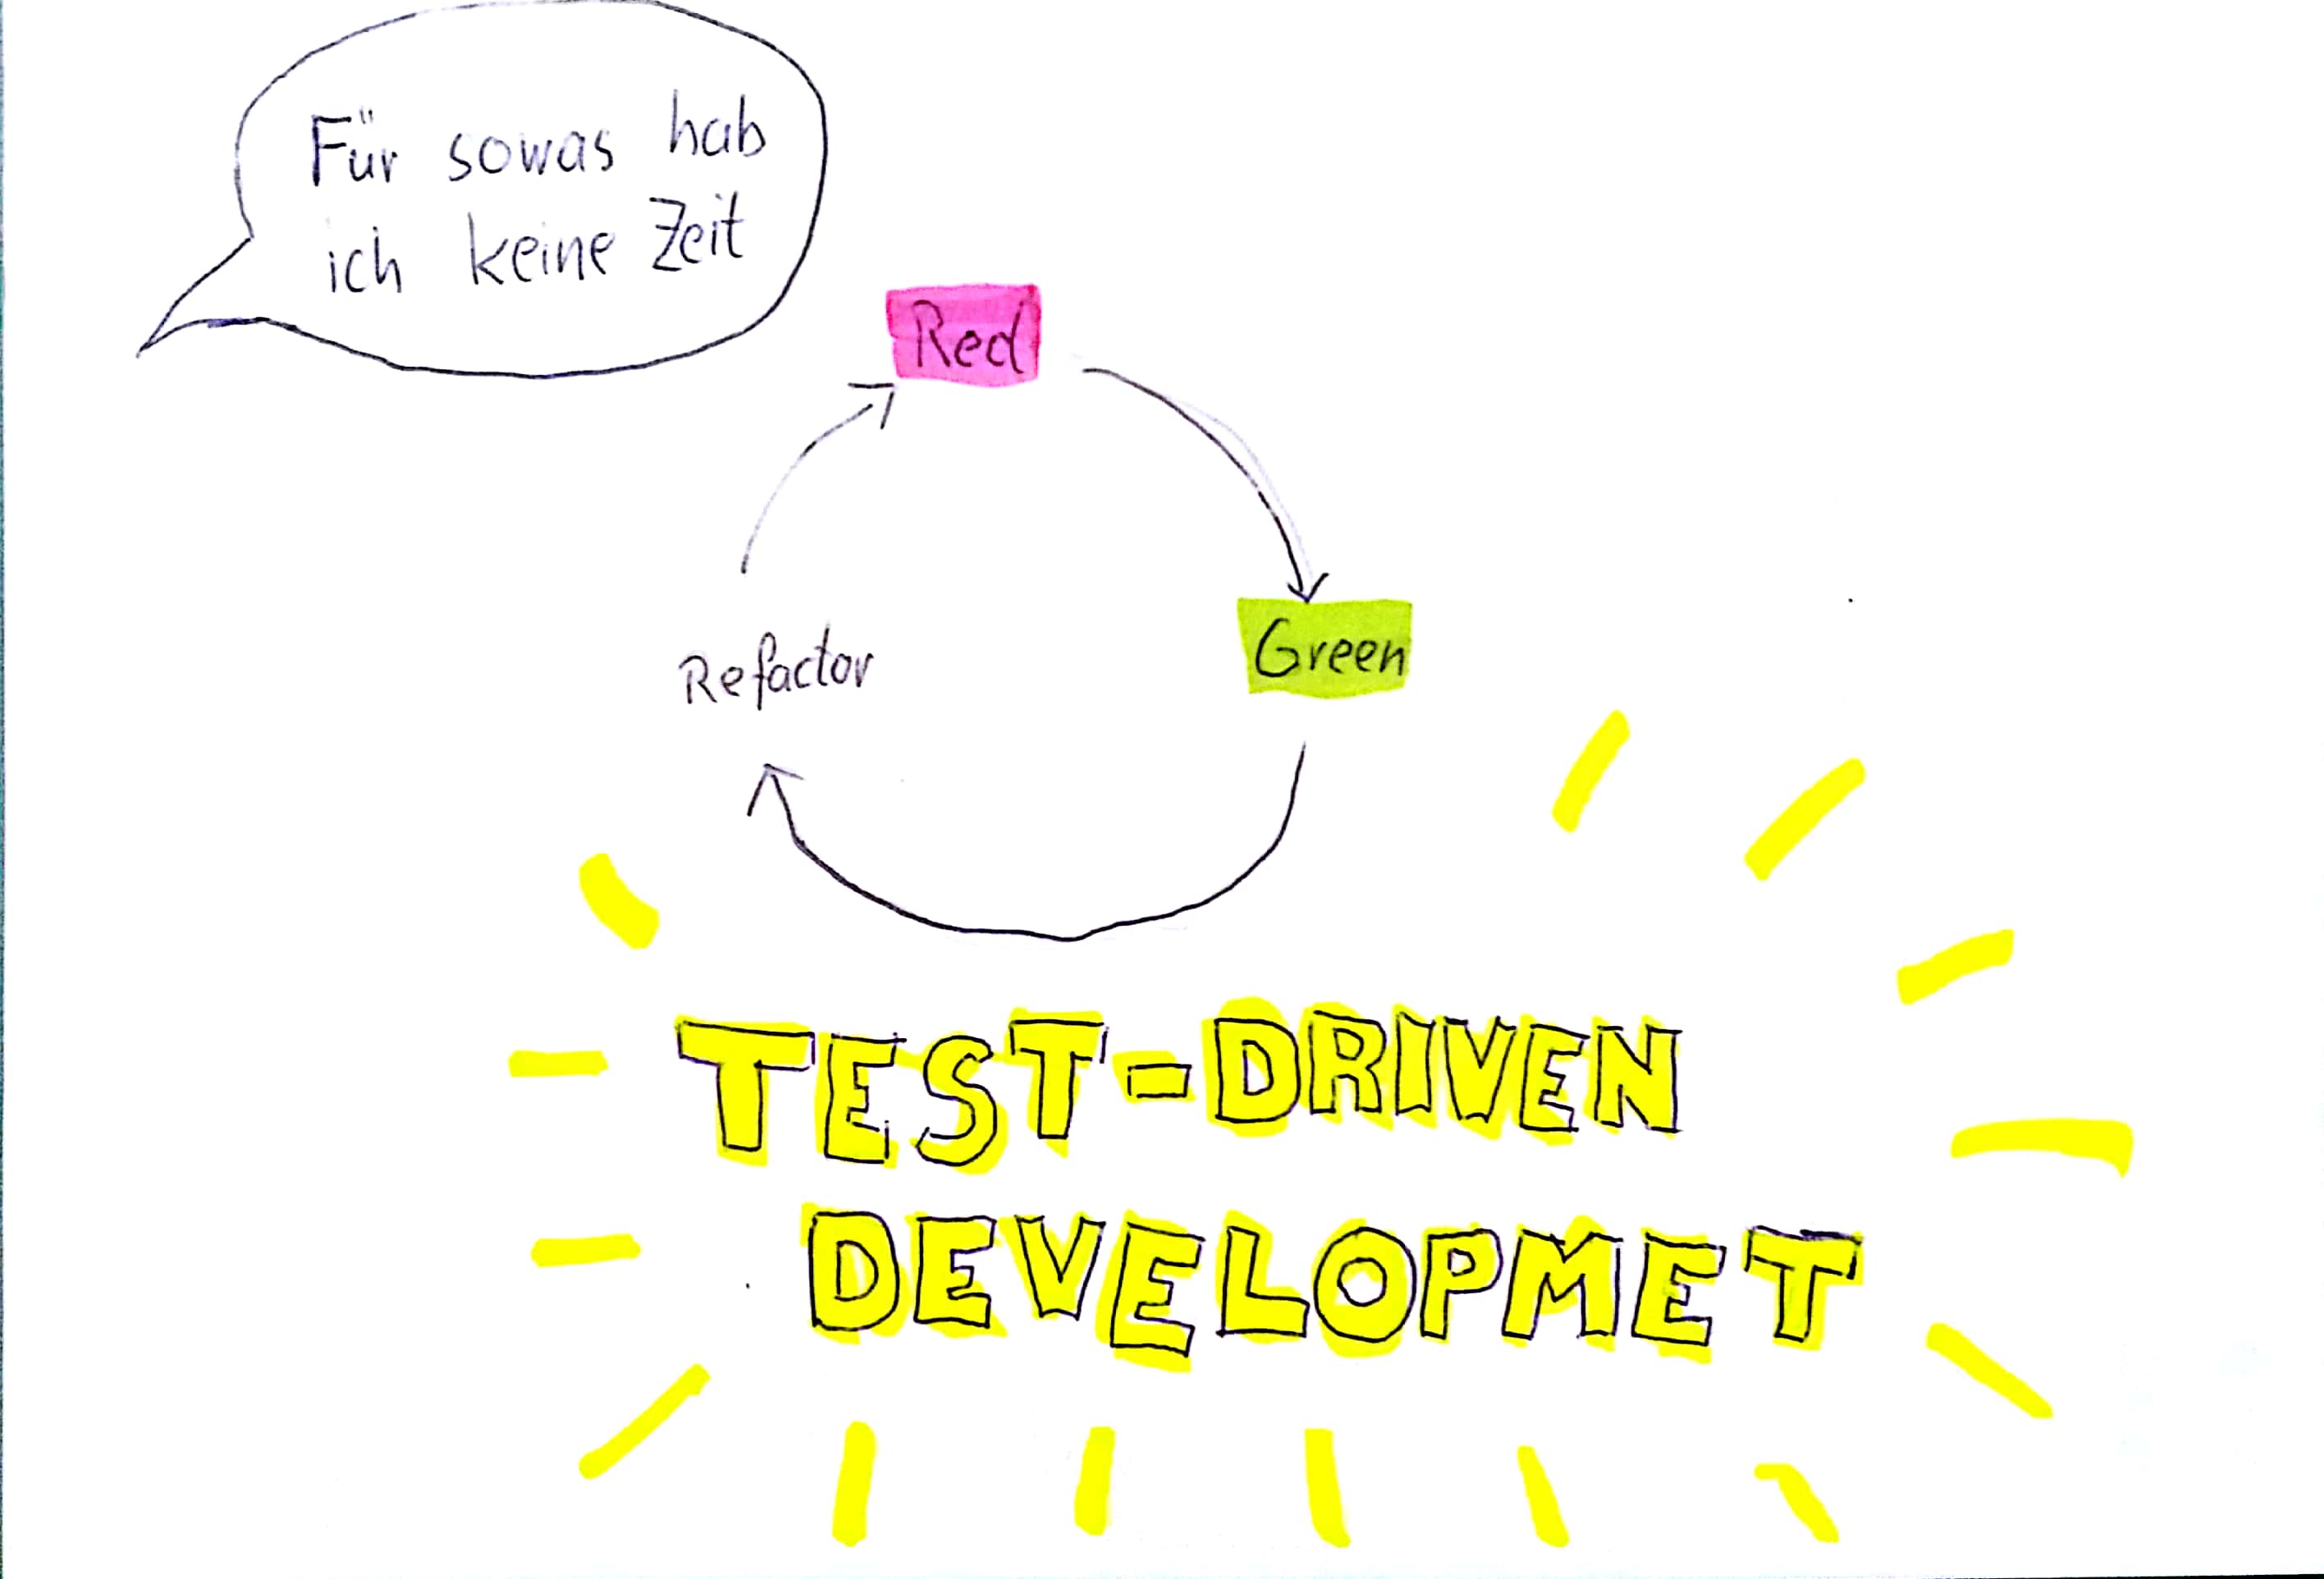 Für sowas hab
ich keine Zeit
Red
Green
Refactor
TEST-DRIVEN
DEVELOPMET